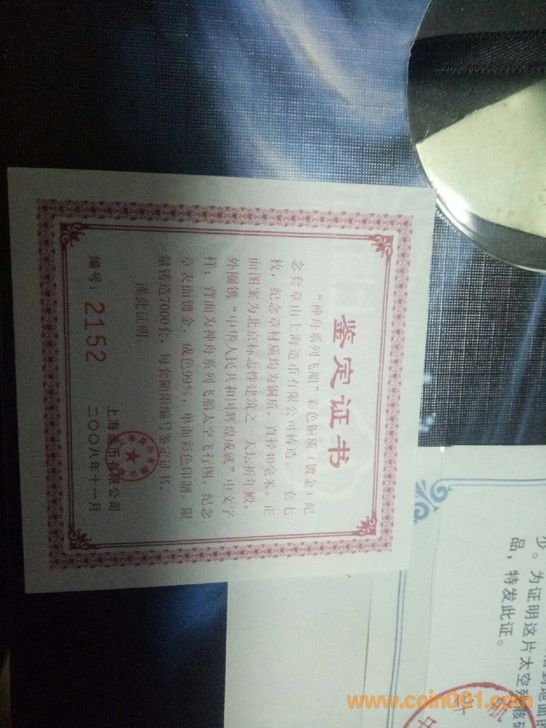 鉴定证书
“神舟系列飞船”彩色铜质（镀金）纪
念套章由上海造币有限公司铸造，一套七
枚，纪念章材质均为铜质，直径40毫米。正
面图案为北京标志性建筑之一天坛祈年殿，
外圈镌“中华人民共和国辉煌成就”中文字
样；背面为神舟系列飞船太空飞行图。纪念
章表面镀金，成色99%，单面彩色印制，限
量铸造7000套，每套附编号鉴定证书。
特此证明。
上海造币有限公司
二〇〇八年十一月
编号：2152
少。为证明这片太空
品，特发此证。
www.coin001.com